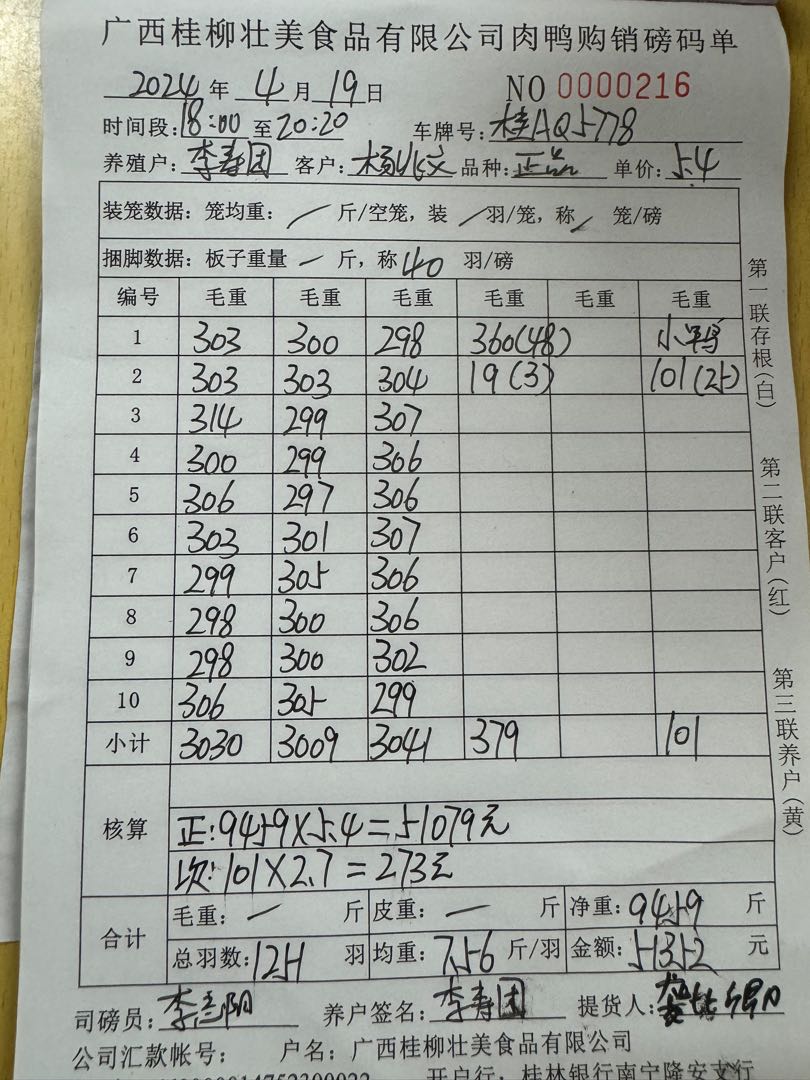 广西桂柳壮美食品有限公司肉鸭购销磅码单
2024 年 4 月 19 日 NO 0000216
时间段:18:00 至 20:20 车牌号:桂AQ5778
养殖户:李寿团 客户:杨兆文 品种:正品 单价:5.4
装笼数据:笼均重: / 斤/空笼,装 / 羽/笼,称 / 笼/磅
捆脚数据:板子重量 — 斤,称 40 羽/磅
编号 毛重 毛重 毛重 毛重 毛重 毛重
1 303 300 298 360(48) 小鸭
2 303 303 304 19(3) 101(25)
3 314 299 307
4 300 299 306
5 306 297 306
6 303 301 307
7 299 305 306
8 298 300 306
9 298 300 302
10 306 305 299
小计 3030 3009 3041 379 101
核算
正:9459×5.4=51079元
次:101×2.7=273元
合计
毛重: — 斤 皮重: — 斤 净重:9459 斤
总羽数:1251 羽 均重:7.56 斤/羽 金额:51352 元
司磅员:李彥阳 养户签名:李寿团 提货人:
公司汇款帐号: 户名:广西桂柳壮美食品有限公司
开户行:桂林银行南宁隆安支行
第一联存根(白)
第二联客户(红)
第三联养户(黄)